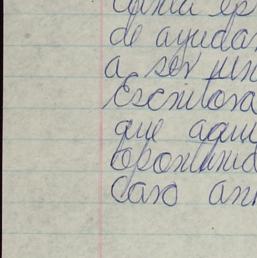 de ayudar
a ser un
Escritora
que aqui
oportunid
caso an